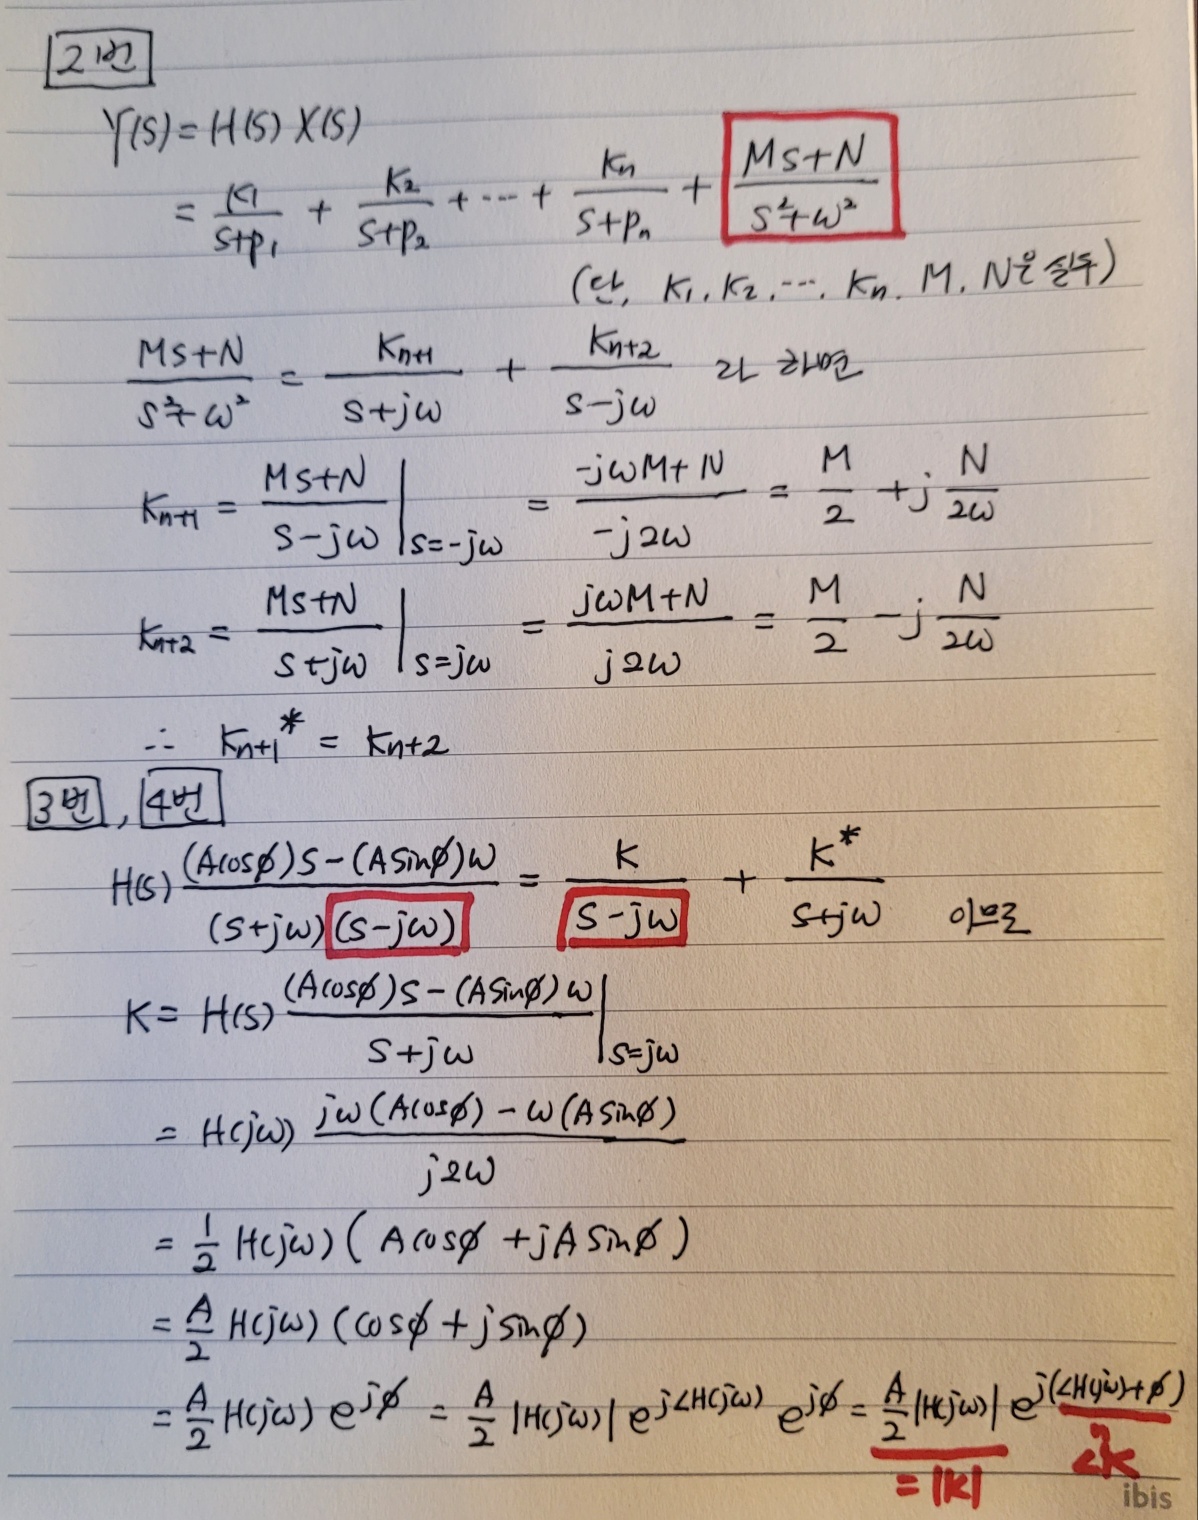 2번
Y(s) = H(s) X(s)
= K₁/(s+p₁) + K₂/(s+p₂) + ··· + Kₙ/(s+pₙ) + (Ms+N)/(s²+ω²)
(단, K₁, K₂, ···, Kₙ, M, N은 실수)
(Ms+N)/(s²+ω²) = Kₙ₊₁/(s+jω) + Kₙ₊₂/(s-jω) 라 하면
Kₙ₊₁ = (Ms+N)/(s-jω) |s=-jω = (-jωM+N)/(-j2ω) = M/2 + j N/2ω
Kₙ₊₂ = (Ms+N)/(s+jω) |s=jω = (jωM+N)/(j2ω) = M/2 - j N/2ω
∴ Kₙ₊₁* = Kₙ₊₂
3번, 4번
H(s) ((Acosϕ)s-(Asinϕ)ω)/((s+jω)(s-jω)) = K/(s-jω) + K*/(s+jω) 이므로
K = H(s) ((Acosϕ)s-(Asinϕ)ω)/(s+jω) |s=jω
= H(jω) (jω(Acosϕ)-ω(Asinϕ))/(j2ω)
= 1/2 H(jω) (Acosϕ+jAsinϕ)
= A/2 H(jω) (cosϕ+jsinϕ)
= A/2 H(jω) e^{jϕ} = A/2 |H(jω)| e^{j∠H(jω)} e^{jϕ} = A/2 |H(jω)| e^{j(∠H(jω)+ϕ)}
= |K| ∠K
ibis